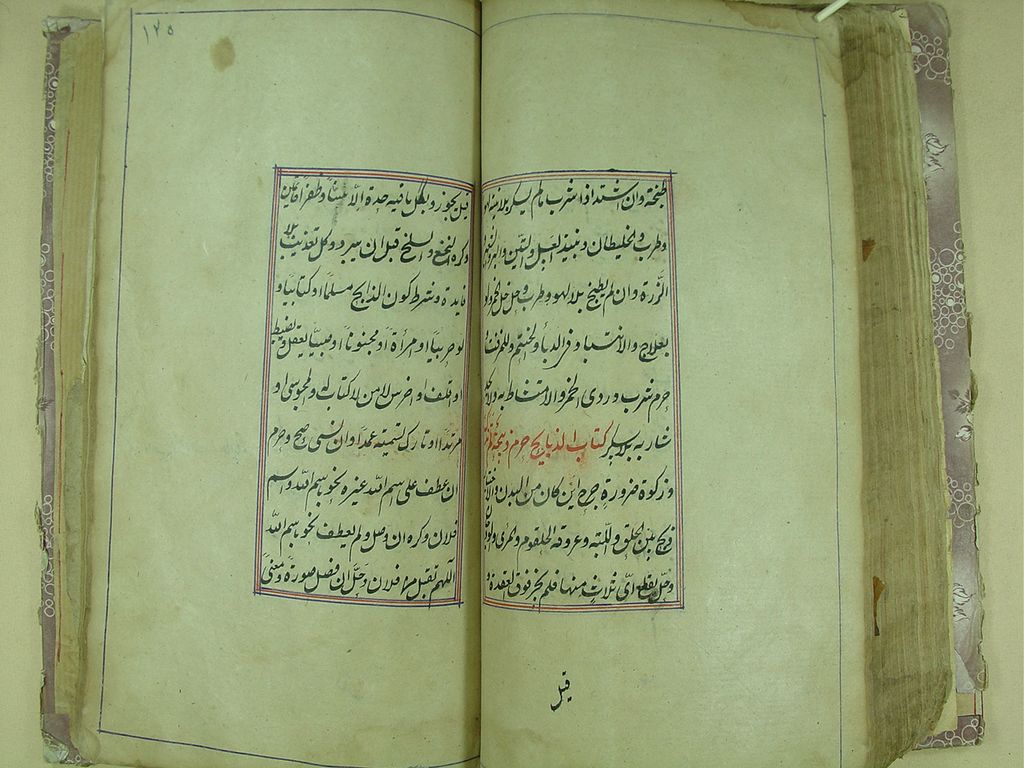 طبخة وان اشتد اذا شرب ما لم يسكر بلا لهو
وطرب والخليطان ونبيذ العسل والتين والبر والشعير
والذرة وان لم يطبخ بلا لهو وطرب وحل خل الخمر ولو
بعلاج والانتباذ في الدباء والحنتم والمزفت
حرم شرب دردى الخمر والامتشاط به ولا يحد
شاربه بلا سكر كتاب الذبايح حرم ذبيحة لم تذك
وزكوة ضرورة جرح اين كان من البدن والاختيار
ذبح بين الحلق واللبة وعروقه الحلقوم والمرى والودجان
وحل بقطع اى ثلاث منها فلم يجز فوق العقدة و
قيل
١٢٥
قيل يجوز وبكل ما فيه حدة الا سنا وظفرا قائمين
وكره النخع والسلخ قبل ان يبرد وكل تعذيب بلا
فايدة وشرط كون الذابح مسلما او كتابيا و
لو حربيا او امرأة او مجنونا او صبيا يعقل ويضبط
او اقلف او اخرس لا من لا كتاب له والمجوسى او
مرتدا او تارك تسميته عمدا وان نسى صح وحرم
ان عطف على اسم الله غيره نحو باسم الله واسم
فلان وكره ان وصل ولم يعطف نحو باسم الله
اللهم تقبل من فلان وحل ان فصل صورة ومعنى